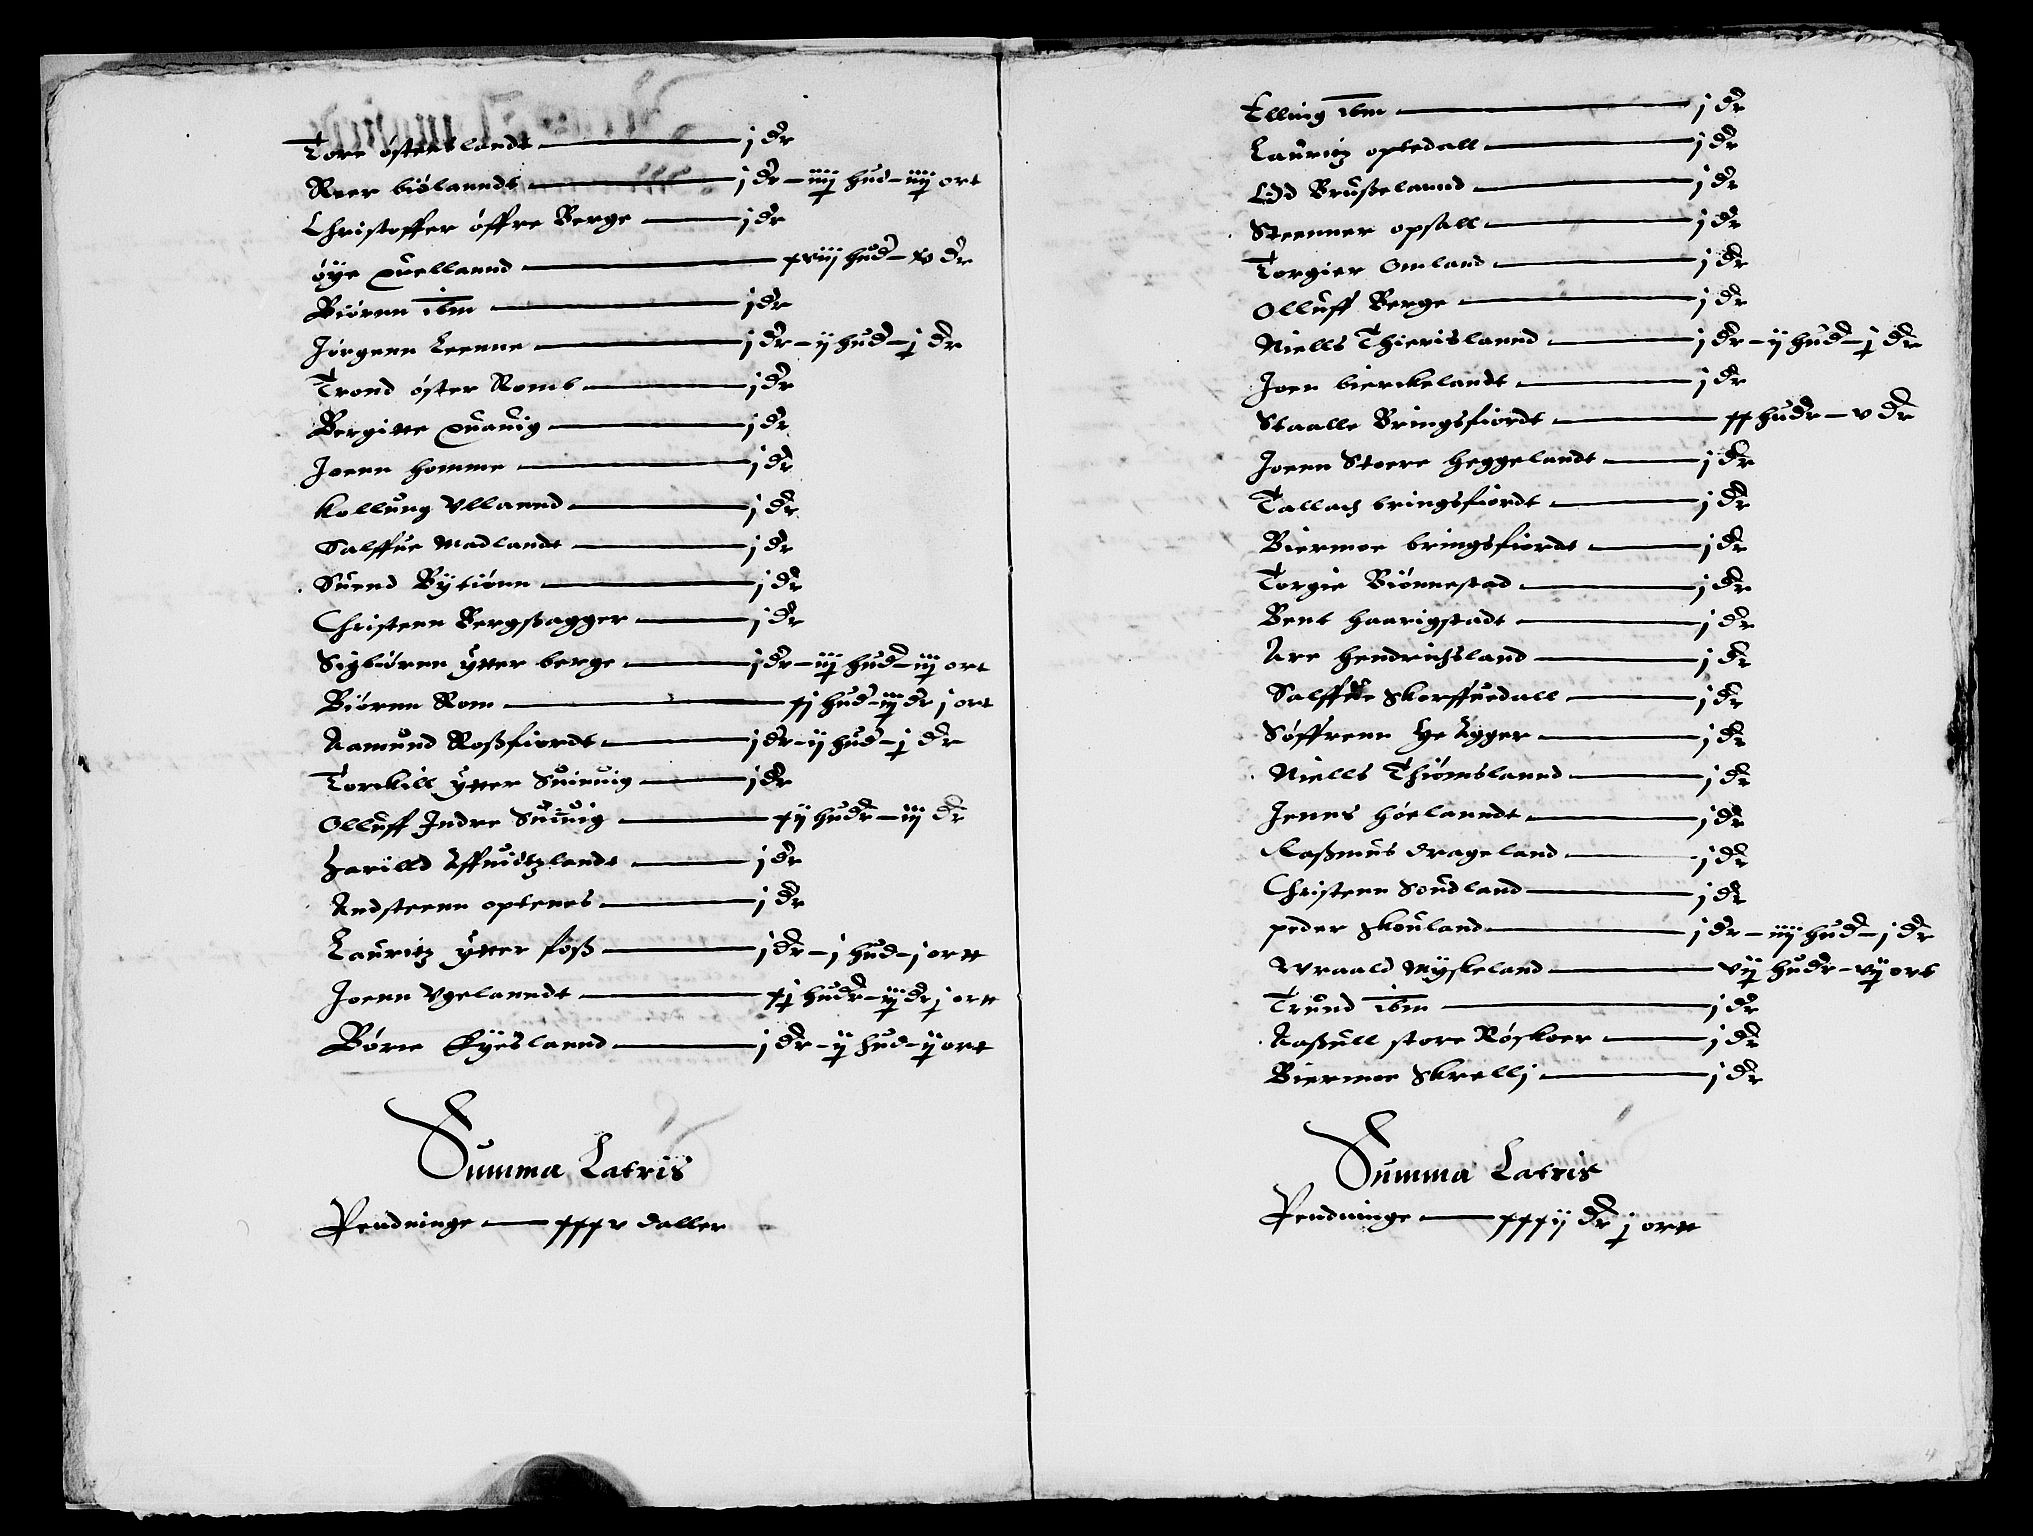 Tore østerslandt — j dr
Reer biølanndt — j dr – iiij hud – iiij ort
Christoffer øffre Berge — j dr
øye quellannd — xviij hud – v dr
Biørnn ibm — j dr
Jørgenn Leenne — j dr – ij hud – j dr
Trond øster Romb — j dr
Bergitte quauig — j dr
Joenn homme — j dr
Kollung Vllannd — j dr
Salffue Madlandt — j dr
Suend Bytiønn — j dr
Christenn Bergßagger — j dr
Sigbiørnn ytter berge — j dr – iij hud – iij ort
Biørnn Rom — xj hud – iij dr j ort
Aamund Roßfiordt — j dr – ij hud – j dr
Torckill ytter Suinuig — j dr
Olluff Indre Suinuig — xij hudr – iij dr
Harilld Affuidtzlandt — j dr
Andsteenn optenes — j dr
Lauritz ytter foß — j dr – j hud – j ortt
Joenn Vgelanndt — xj hudr – iij dr j ortt
Børre Eyeslannd — j dr – ij hud – ij ort
Summa Latris
Pendninge — xxxv daller
Elling ibm — j dr
Lauritz optedall — j dr
Odd Brußelannd — j dr
Steenner opsall — j dr
Torgier Omland — j dr
Olluff Berge — j dr
Niells Thierislannd — j dr – ij hud – j dr
Joen bierckelandt — j dr
Staalle Bringsfiordt — xx hudr – v dr
Joenn Stoere heggelandt — j dr
Tallach bringsfiordt — j dr
Biermoe bringsfiordt — j dr
Torgie Biønnestad — j dr
Bent haarigstadt — j dr
Are hendrichsland — j dr
Salffue Skorffuedall — j dr
Søffrenn Hye Agger — j dr
Niells Thiømslannd — j dr
Jenns høelanndt — j dr
Raßmus drageland — j dr
Christenn Soudland — j dr
peder Skouland — j dr – iiij hud – j dr
Wraald Myskeland — vij hudr – vij ort
Trund ibm — j dr
Aaßull store Røskoer — j dr
Biermoe Skrellj — j dr
Summa Latris
Pendninge — xxxij dr j ortt
4